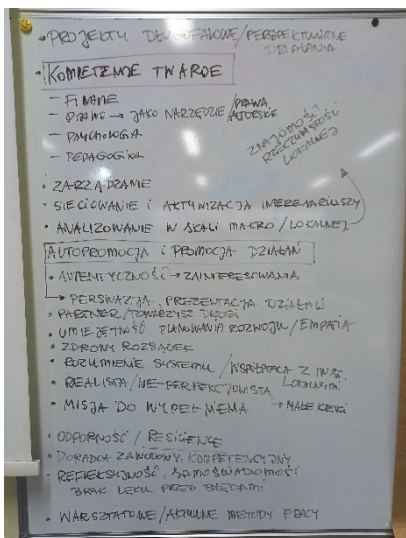 • PROJEKTY DŁUGOFALOWE/PERSPEKTYWICZNE
DZIAŁANIA
• KOMPETENCJE TWARDE
– FINANSE
– PRAWO → JAKO NARZĘDZIE/PRAWA
AUTORSKIE
– PSYCHOLOGIA
– PEDAGOGIKA
ZNAJOMOŚĆ
RZECZYWISTOŚCI
LOKALNEJ
• ZARZĄDZANIE
• SIECIOWANIE i AKTYWIZACJA INTERESARIUSZY
• ANALIZOWANIE W SKALI MAKRO/LOKALNEJ
AUTOPROMOCJA i PROMOCJA DZIAŁAŃ
• AUTENTYCZNOŚĆ → ZAINTERESOWANIA
PERSWAZJA, PREZENTACJA DZIAŁAŃ
• PARTNER/TOWARZYSZ DROGI
• UMIEJĘTNOŚĆ PLANOWANIA ROZWOJU/EMPATIA
• ZDROWY ROZSĄDEK
• ROZUMIENIE SYSTEMU/WSPÓŁPRACA Z INST.
LOKALNYMI
• REALISTA/NIE-PERFEKCJONISTA
• MISJA DO WYPEŁNIENIA → MAŁE KROKI
• ODPORNOŚĆ/RESILIENCE
• DORADCA ZAWODOWY, KOMPETENCYJNY
• REFLEKSYJNOŚĆ, SAMOŚWIADOMOŚĆ
BRAK LĘKU PRZED BŁĘDAMI
• WARSZTATOWE/AKTYWNE METODY PRACY